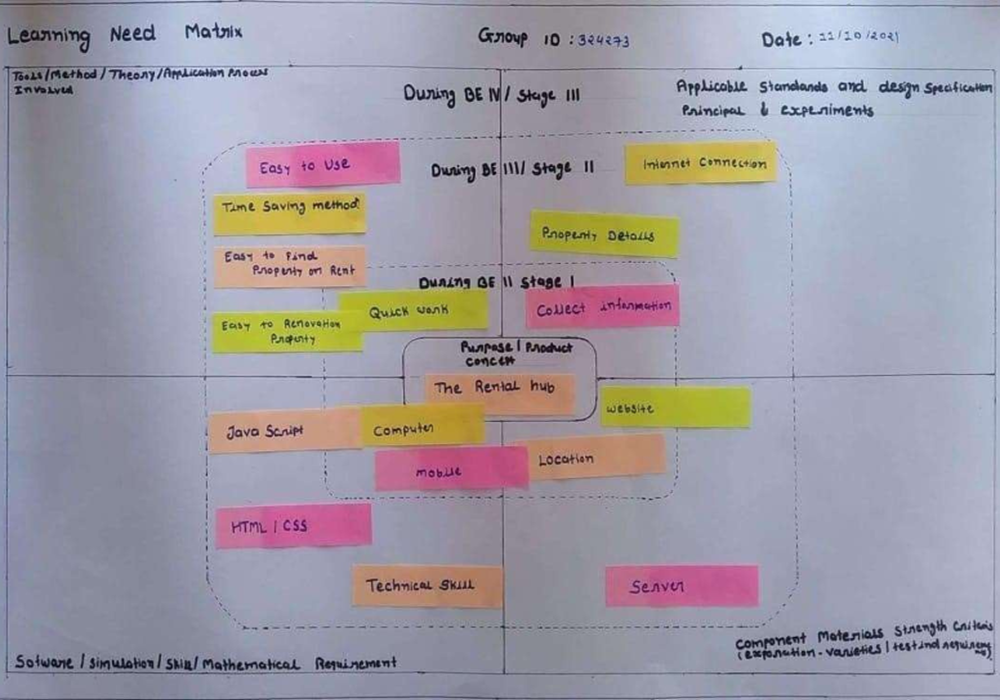 Learning Need Matrix
Group ID : 324273
Date : 11/10/2021
Tools/Method/Theory/Application Process
Involved
During BE IV/ Stage III
Applicable Standards and design Specification
Principal & experiments
Easy to Use
During BE III/ Stage II
Internet Connection
Time Saving method
Property Details
Easy to Find
Property on Rent
During BE II Stage I
Quick work
Collect information
Easy to Renovation
Property
Purpose | Product
concept
The Rental hub
Website
Java Script
Computer
Mobile
Location
HTML | CSS
Technical Skill
Server
Sotware/simulation/skill/Mathematical Requirement
Component Materials Strength Criteria